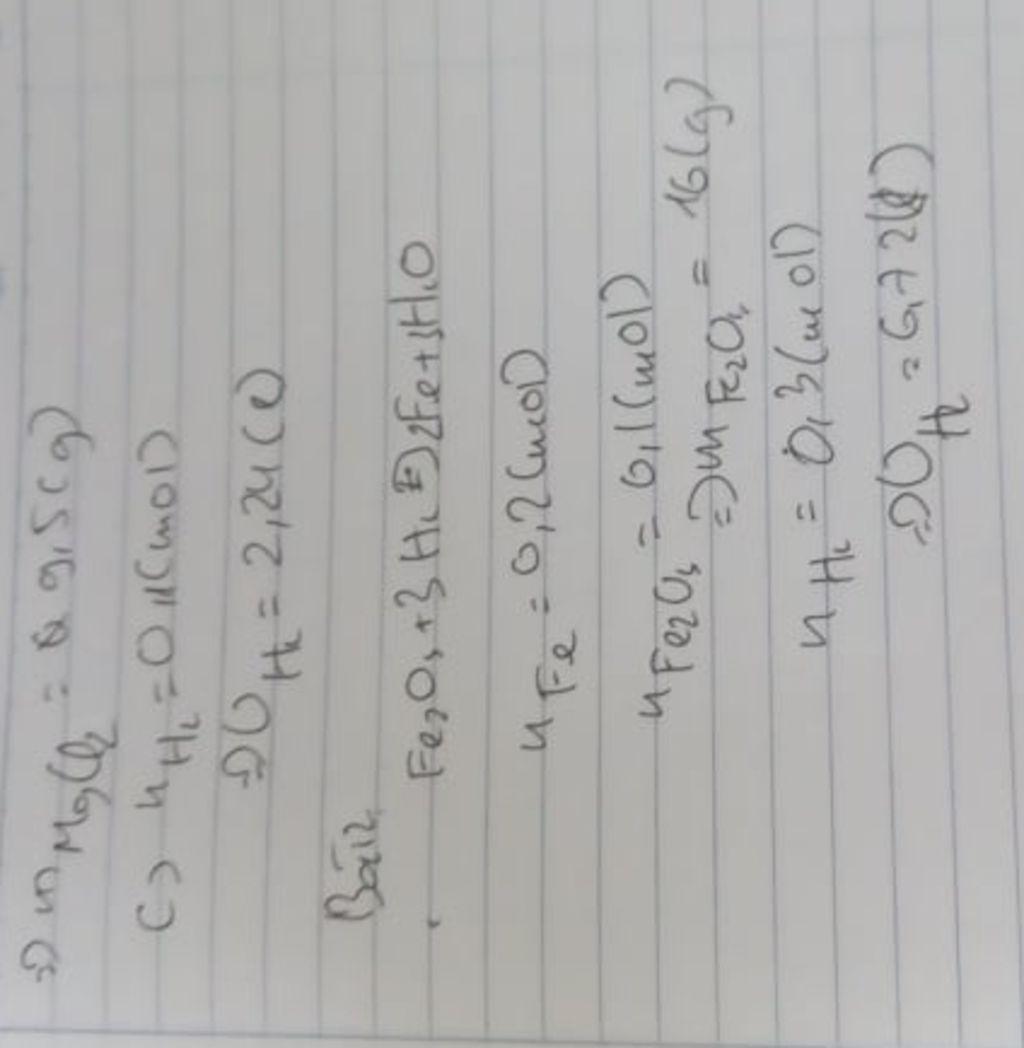 => m MgCl2 = 9,5 (g)
c) n H2 = 0,1 (mol)
=> V H2 = 2,24 (l)
Bài 2,
Fe2O3 + 3H2 → 2Fe + 3H2O
n Fe = 0,2 (mol)
n Fe2O3 = 0,1 (mol)
=> m Fe2O3 = 16 (g)
n H2 = 0,3 (mol)
=> V H2 = 6,72 (l)